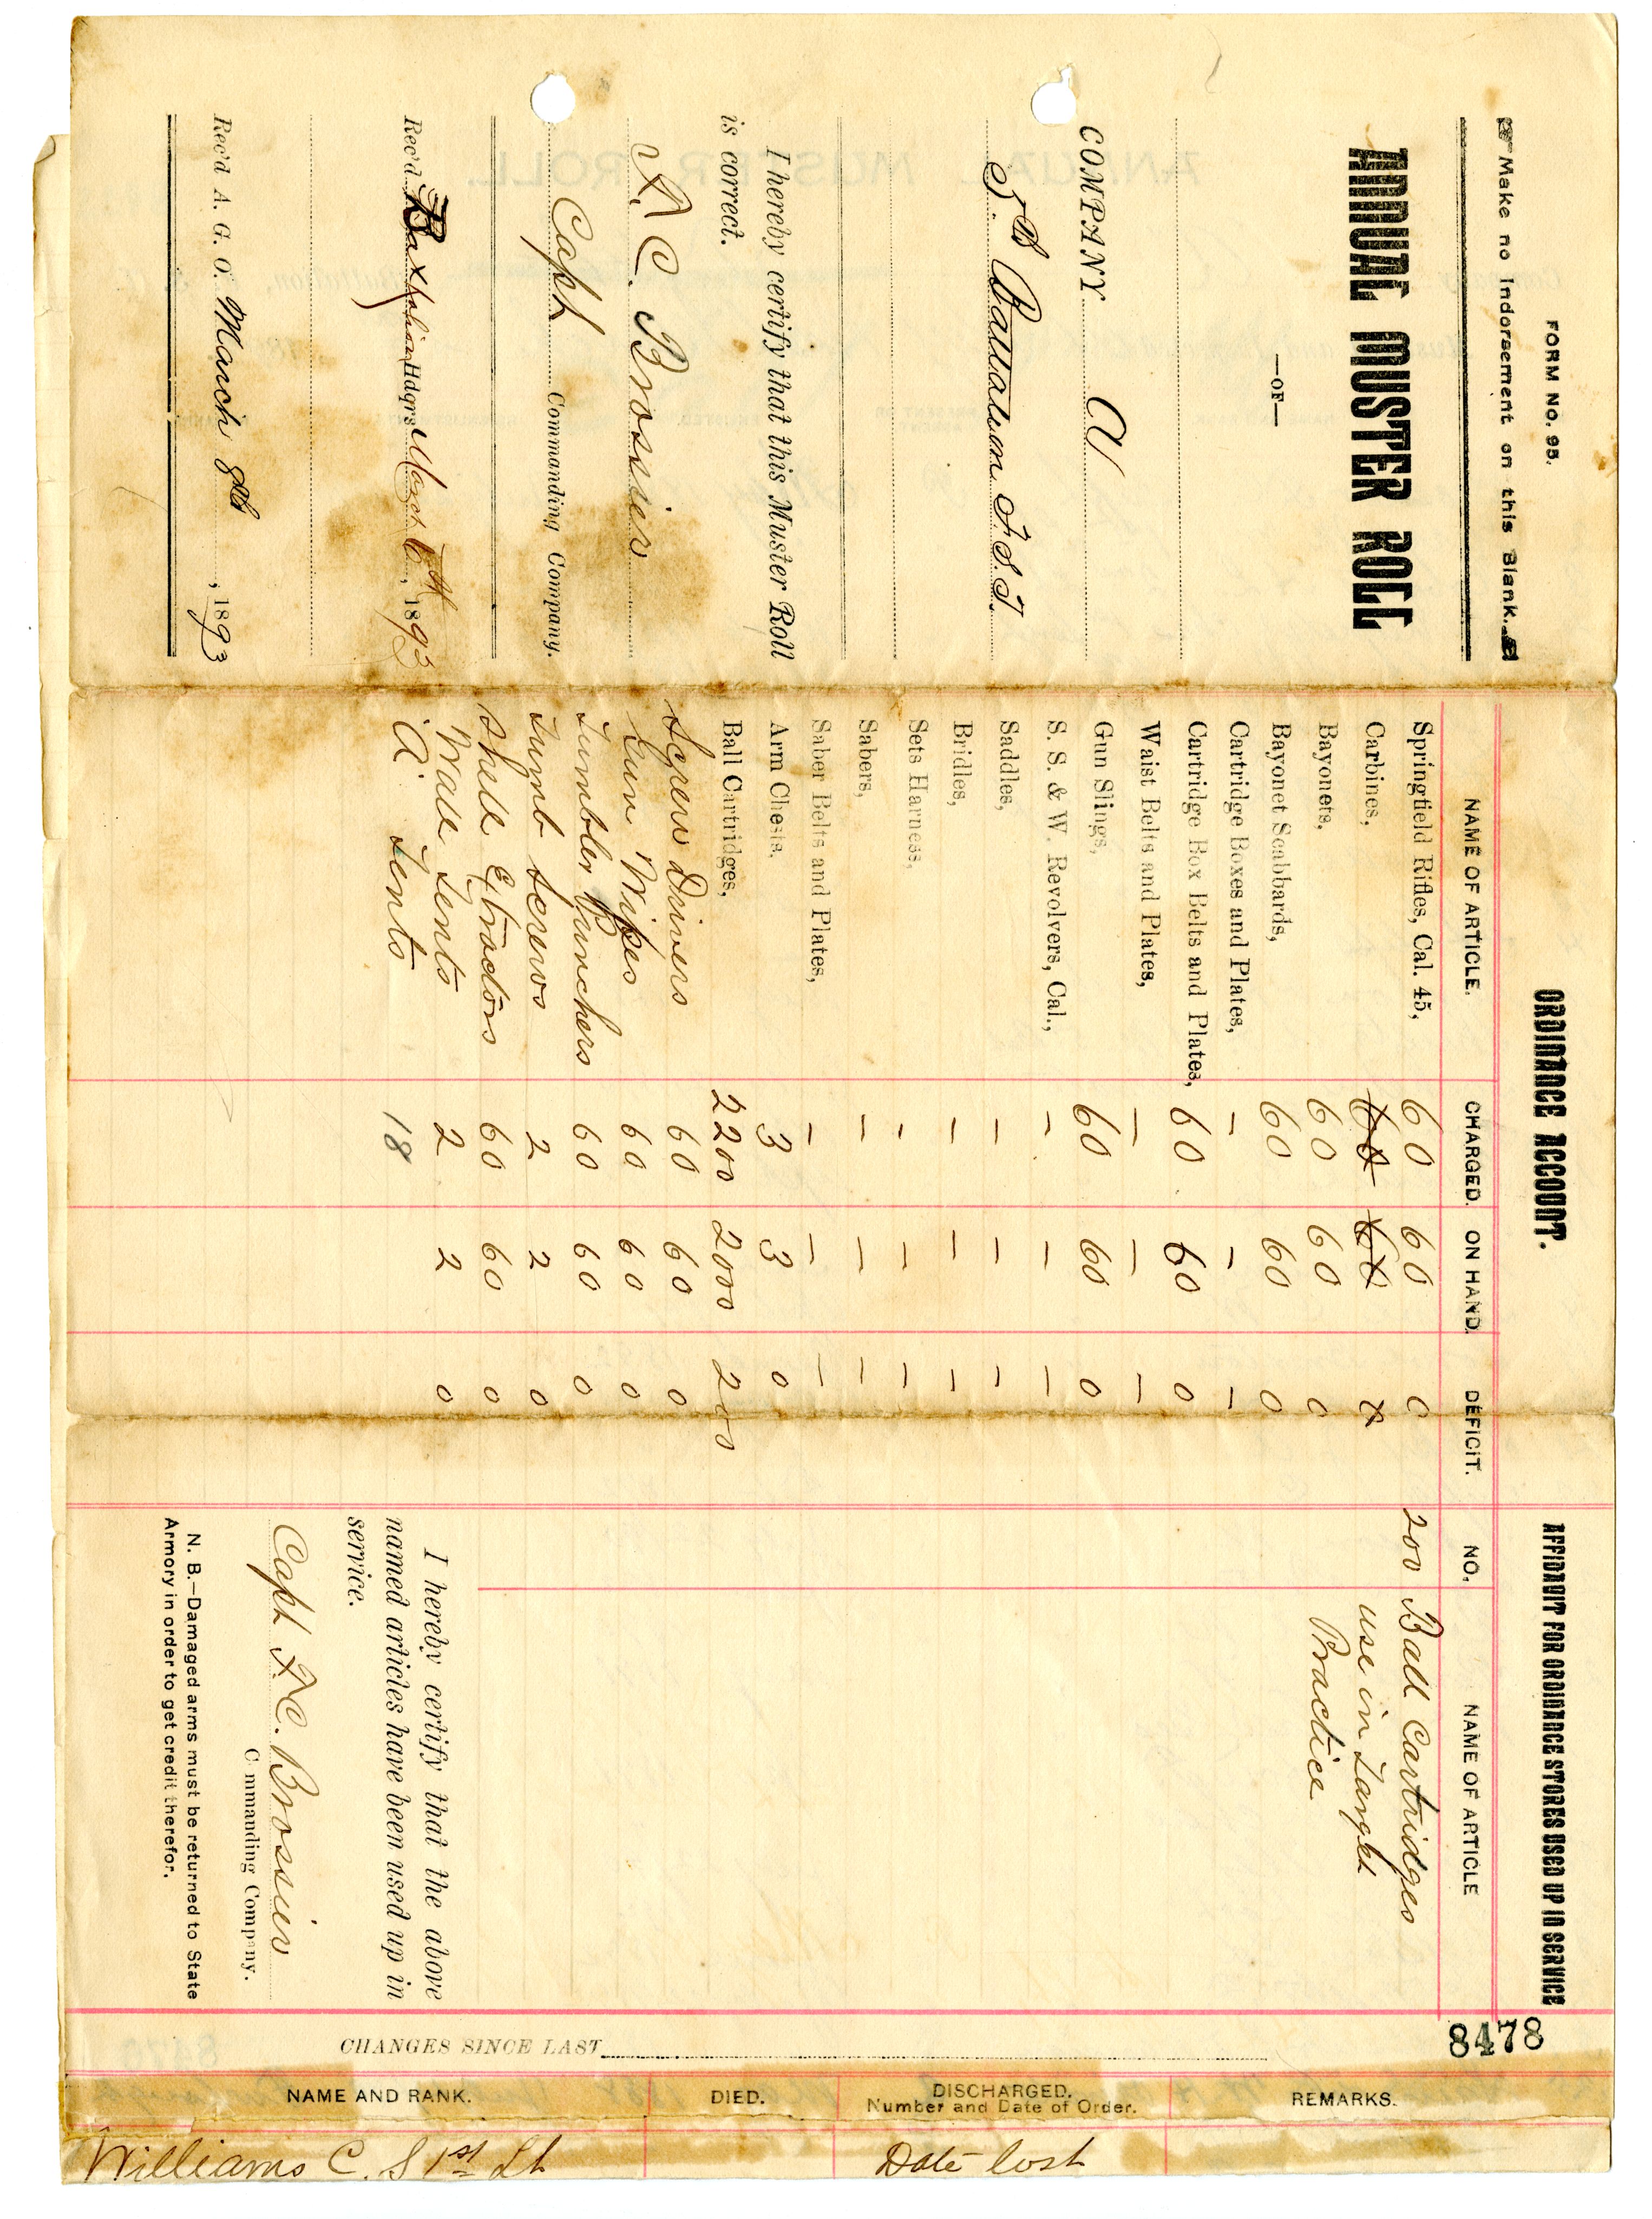 FORM NO. 95.
Make no Indorsement on this Blank.
ANNUAL MUSTER ROLL
—OF—
COMPANY A
5th Battalion F.S.T.
I hereby certify that this Muster Roll
is correct.
A. C. Brossier
Capt Commanding Company.
Rec'd Battalion Hdqrs March 6th, 1893
Rec'd A. G. O. March 8th, 1893
ORDINANCE ACCOUNT.
NAME OF ARTICLE. CHARGED. ON HAND. DEFICIT.
Springfield Rifles, Cal. 45, 60 60 0
Carbines, 60 60 0
Bayonets, 60 60 0
Bayonet Scabbards, 60 60 0
Cartridge Boxes and Plates, – – –
Cartridge Box Belts and Plates, 60 60 0
Waist Belts and Plates, – – –
Gun Slings, 60 60 0
S. S. & W. Revolvers, Cal., – – –
Saddles, – – –
Bridles, – – –
Sets Harness, – – –
Sabers, – – –
Saber Belts and Plates, – – –
Arm Chests, 3 3 0
Ball Cartridges, 2200 2000 200
Screw Drivers 60 60 0
Gun Wipes 60 60 0
Tumbler Punchers 60 60 0
Tumb Screws 2 2 0
Shell Extractors 60 60 0
Wall Tents 2 2 0
"A" Tents 18
AFFIDAVIT FOR ORDINANCE STORES USED UP IN SERVICE
NO, NAME OF ARTICLE
200 Ball Cartridges
use in Target
Practice
I hereby certify that the above
named articles have been used up in
service.
Capt A. C. Brossier
C mmanding Company.
N. B.—Damaged arms must be returned to State
Armory in order to get credit therefor.
8478
CHANGES SINCE LAST
NAME AND RANK. DIED. DISCHARGED. REMARKS.
Number and Date of Order.
Williams C. S 1st Lt Date lost